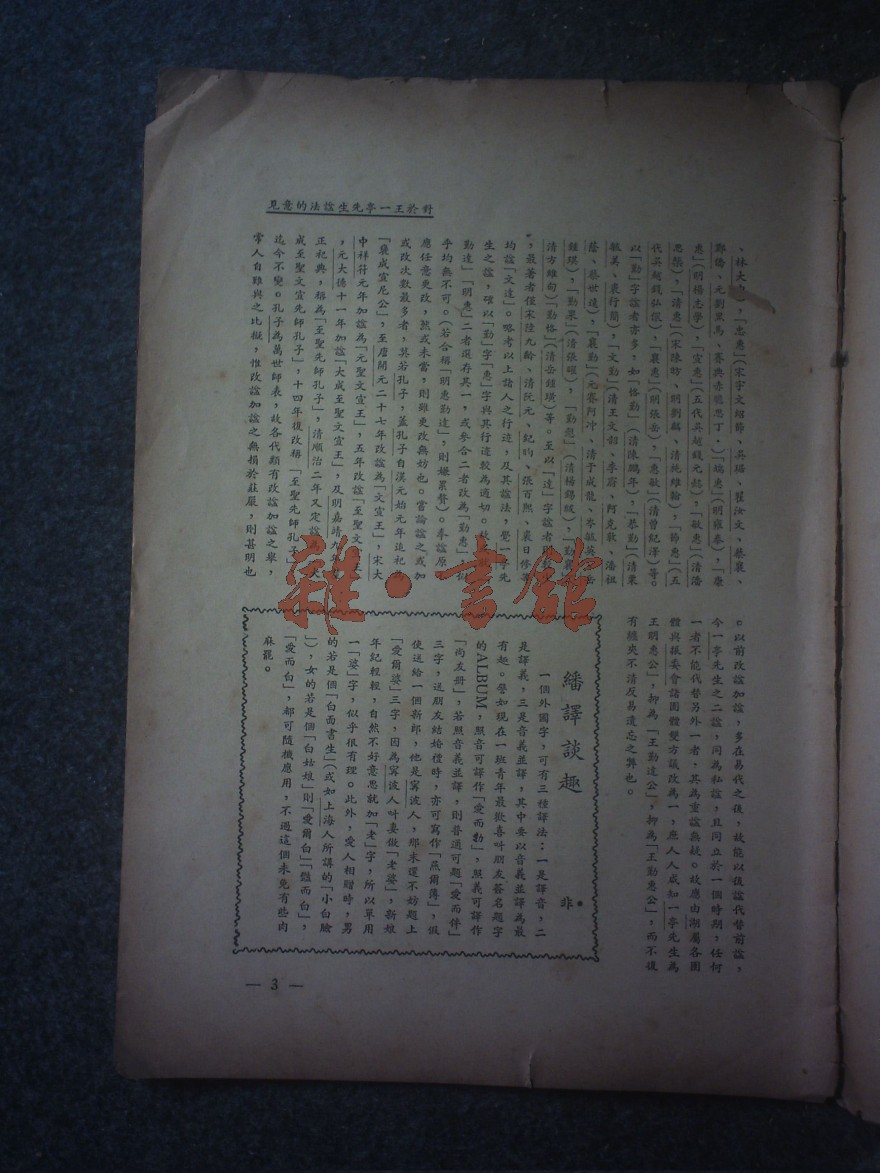 對於王一亭先生諡法的意見
、林大▢，「忠惠」（宋宇文紹節、吳琚、翟汝文、蔡襄、
鄭僑、元劉黑馬、賽典赤瞻思丁。）「端惠」（明雍泰），「康
惠」（明楊志學），「宣惠」（五代吳越錢元懿），「敏惠」（清潘
思榘），「清惠」（宋陳昉、明劉麟、清施維翰，「節惠」（五
代吳越錢弘偡），「襄惠」（明張岳），「惠敏」（清曾紀澤）等。
以「勤」字諡者亦多，如「恪勤」（清陳鵬年），「恭勤」（清栗
毓美、袁行簡），「文勤」（清王文韶、李蔚、阿克敦、潘祖
蔭、蔡世遠），「襄勤」（元賽阿沖、清于成龍、岑毓英、岳
鍾琪），「勤果」（清張曜），「勤愨」（清楊錫紱），「勤襄」
清方維甸）「勤恪」（清岳鍾璜）等。至以「達」字諡者
，最著者僅宋陸九齡、清阮元、紀昀、張百熙、裘日修等
均諡「文達」。略考以上諸人之行述，及其諡法，覺一亭先
生之諡，確以「勤」字「惠」字與其行述較為適切。故
勤達」「明惠」二者選存其一，或參合二者改為「勤惠」，
乎均無不可。（若合稱「明惠勤達」，則嫌累贅）。本諡原
應任意更改，然或未當，則雖更改無妨也。嘗論諡之或加
或改次數最多者，莫若孔子，蓋孔子自漢元始元年追祀為
「襃成宣尼公」，至唐開元二十七年改諡為「文宣王」，宋大
中祥符元年加諡為「元聖文宣王」，五年改諡「至聖文宣王」
，元大德十一年加諡「大成至聖文宣王」，及明嘉靖九年
正祀典，稱為「至聖先師孔子」，清順治二年又定諡為「大
成至聖文宣先師孔子」，十四年復改稱「至聖先師孔子」，
迄今不變。孔子為萬世師表，故各代頗有改諡加諡之舉，
常人自難與之比擬，惟改諡加諡之無損於莊嚴，則甚明也
。以前改諡加諡，多在易代之後，故能以後諡代替前諡，
今一亭先生之二諡，同為私諡，且同立於一個時期，任何
一者不能代替另外一者，其為重諡無疑。故應由湖屬各團
體與振委會諸團體雙方議改為一，庶人人咸知一亭先生為
王明惠公，抑為「王勤達公」，抑為「王勤惠公」，而不復
有纏夾不清反易遺忘之弊也。
繙譯談趣
非
一個外國字，可有三種譯法：一是譯音，二
是譯義，三是音義並譯，其中要以音義並譯為最
有趣。譬如現在一班青年最歡喜叫朋友簽名題字
的ALBUM，照音可譯作「愛而勃」，照義可譯作
「尚友冊」，若照音義並譯，則普通可題「愛而伴」
三字，送朋友結婚禮時，亦可寫作「燕爾簿」，假
使送給一個新郎，他是寗波人，那末還不妨題上
「愛爾婆」三字，因為寗波人叫妻做「老婆」，新娘
年紀輕輕，自然不好意思就加「老」字，所以單用
一「婆」字，似乎很有理。此外，愛人相贈時，男
的若是個「白面書生」（或如上海人所講的「小白臉
」），女的若是個「白姑娘」則「愛爾白」「儺而白」，
「愛而白」，都可隨機應用，不過這個未免有些肉
麻罷。
— 3 —
雜·書館